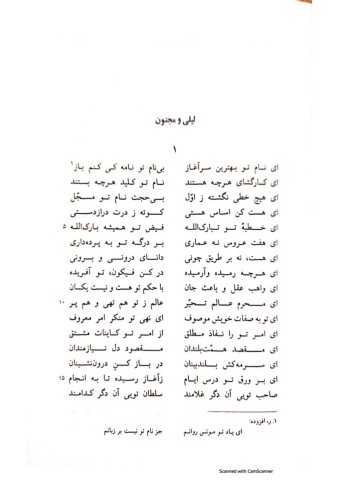 لیلی و مجنون
۱
ای نام تو بهترین سرآغاز بی‌نام تو نامه کی کنم باز۱
ای کارگشای هرچه هستند نام تو کلید هرچه بستند
ای هیچ خطی نگشته ز اوّل بی‌حجت نام تو مسجّل
ای هست کن اساس هستی کوته ز درت درازدستی
ای خطبهٔ تو تبارک‌الله فیض تو همیشه بارک‌الله ۵
ای هفت عروس نه عماری بر درگه تو به پرده‌داری
ای هست، نه بر طریق چونی دانای درونی و برونی
ای هرچه رمیده وآرمیده در کن فیکون، تو آفریده
ای واهب عقل و باعث جان با حکم تو هست و نیست یکسان
ای محرم عالم تحیّر عالم ز تو هم تهی و هم پر ۱۰
ای تو به صفات خویش موصوف ای نهی تو منکر امر معروف
ای امر تو را نفاذ مطلق از امر تو کاینات مشتق
ای مقصد همّت‌بلندان مقصود دل نیازمندان
ای سرمه‌کش بلندبینان در باز کن درون‌نشینان
ای بر ورق تو درس ایام زآغاز رسیده تا به انجام ۱۵
صاحب تویی آن دگر غلامند سلطان تویی آن دگر کدامند
۱. ر، افزوده:
ای یاد تو مونس روانم جز نام تو نیست بر زبانم
Scanned with CamScanner